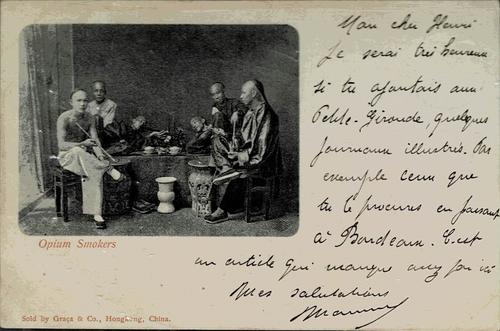 Mon cher Henri
Je serai très heureux
si tu ajoutais aux
Petite-Gironde, quelques
journaux illustrés. Par
exemple ceux que
tu te procures en passant
à Bordeaux. C'est
un article qui manque ici
Mes salutations
Opium Smokers
Sold by Graça & Co., Hongkong, China.